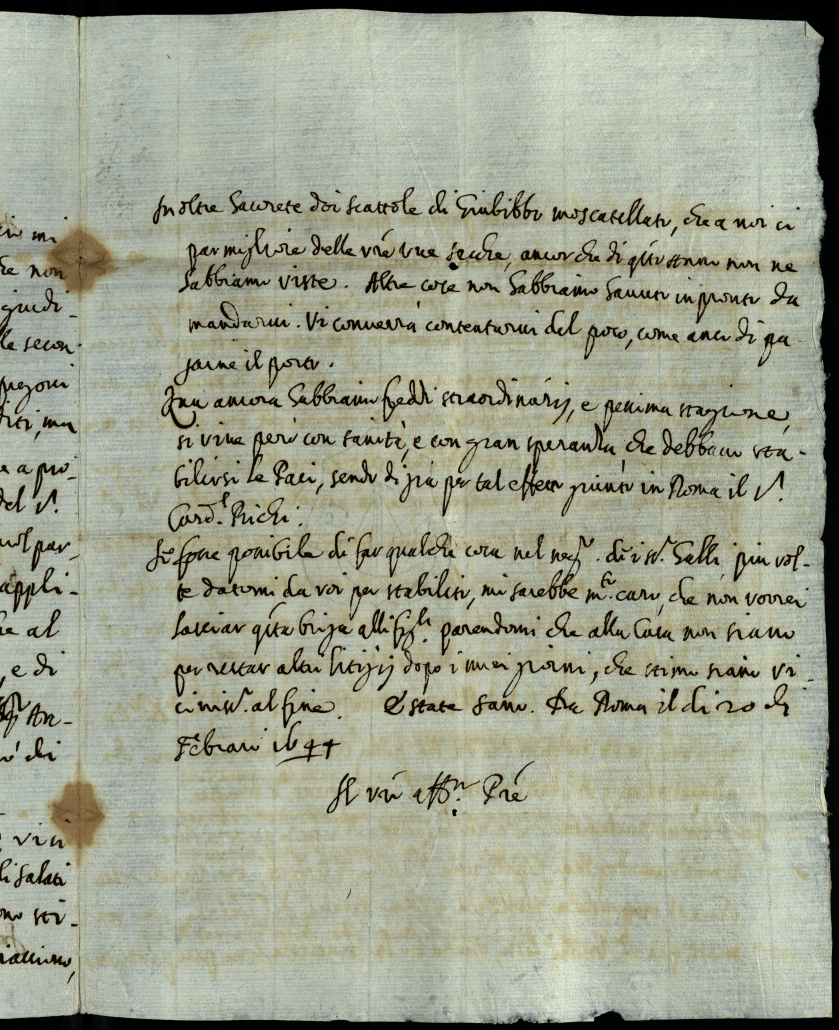 in mi
he non
giudi-
la secon-
pregoni
diti, ma
e a pro-
del s.r
uol par,
appli-
he al
, e di
An-
di
vici
li salati
ono sti-
Inoltre haverete doi scattole di Giubibbo moscatellato, che a noi ci
par migliore delle vr̃e uue secche, ancorche di q̃sto anno non ne
habbiamo viste. Altre cose non habbiamo hauuto in pronto da
mandarui. Vi conuerrà contentarui del poco, come anco di pa-
garne il porto.
Qua ancora habbiamo freddi straordinarij, e pessima stagione,
si viue però con sanità, e con gran speranza che debbano sta-
bilirsi le Paci, sendo di già per tal effetto giunto in Roma il s.r
Card.l Bichi.
Se fosse possibile di far qualche cosa nel neg.o di i s.ri Galli più vol-
te datomi da voi per stabilito, mi sarebbe m.to caro, che non vorrei
lasciar q̃sta briga alli fig.li parendomi che alla Casa non siano
per restar altri litigij dopo i miei giorni, che stimo siano vi-
ciniss.i al fine. E state sano. Da Roma il di 20 di
Febraro 1644
Il vr̃o aff.mo Pr̃e